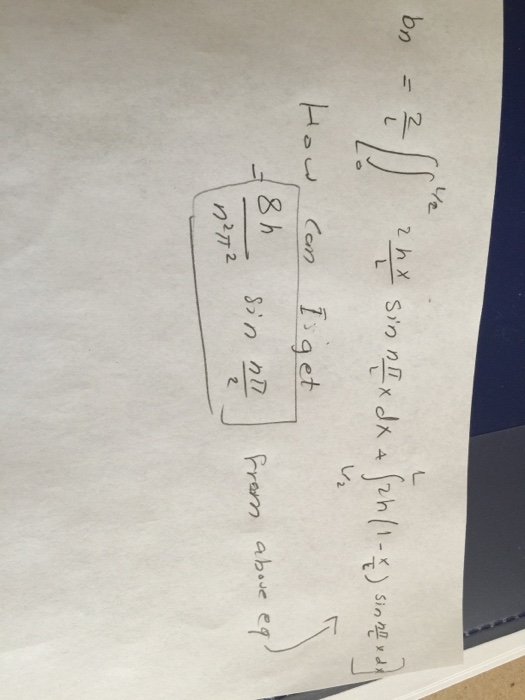 bn = 2/L [ ∫₀^{L/2} 2hx/L sin nπ/L x dx + ∫_{L/2}^{L} 2h(1 - x/L) sin nπ/L x dx ]
How can I get
= 8h/n²π² sin nπ/2 from above eq